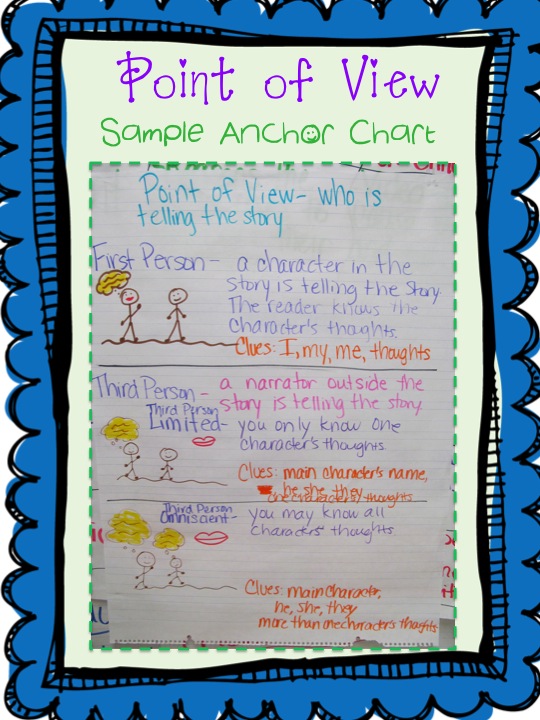 Point of View
Sample Anchor Chart
Point of View- who is
telling the story
First Person- a character in the
story is telling the story.
The reader knows the
character's thoughts.
Clues: I, my, me, thoughts
Third Person- a narrator outside the
story is telling the story
Third Person
Limited- you only know one
character's thoughts
Clues: main character's name,
he, she, they
one character's thoughts
Third Person
Omniscient- you may know all
characters' thoughts.
Clues: main character,
he, she, they
more than one character's thoughts